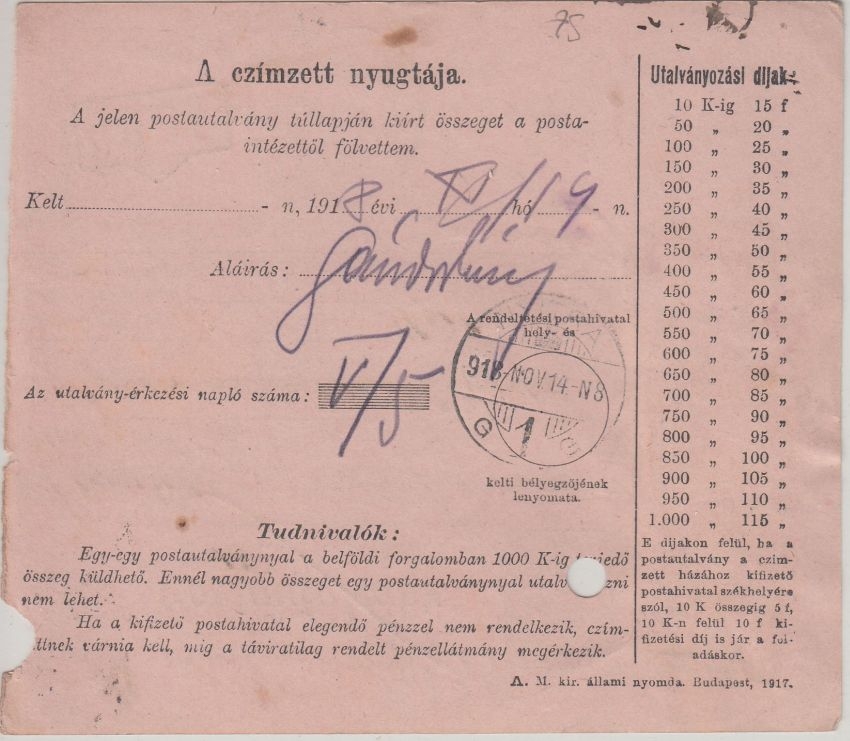 75
A czímzett nyugtája.
A jelen postautalvány túllapján kiírt összeget a posta-
intézettől fölvettem.
Kelt - n, 1918 évi XI/14 hó - n.
Aláírás:
A rendeltetési postahivatal
hely- és
918-NOV14-N8
G 1
V/5
Az utalvány-érkezési napló száma:
kelti bélyegzőjének
lenyomata.
Tudnivalók:
Egy-egy postautalványnyal a belföldi forgalomban 1000 K-ig terjedő
összeg küldhető. Ennél nagyobb összeget egy postautalványnyal utalv zni
nem lehet.
Ha a kifizető postahivatal elegendő pénzzel nem rendelkezik, czím-
ttnek várnia kell, míg a táviratilag rendelt pénzellátmány megérkezik.
Utalványozási díjak:
10 K-ig 15 f
50 „ 20 „
100 „ 25 „
150 „ 30 „
200 „ 35 „
250 „ 40 „
300 „ 45 „
350 „ 50 „
400 „ 55 „
450 „ 60 „
500 „ 65 „
550 „ 70 „
600 „ 75 „
650 „ 80 „
700 „ 85 „
750 „ 90 „
800 „ 95 „
850 „ 100 „
900 „ 105 „
950 „ 110 „
1.000 „ 115 „
E díjakon felül, ha a
postautalvány a czím-
zett házához kifizető
postahivatal székhelyére
szól, 10 K összegig 5 f,
10 K-n felül 10 f ki-
fizetési díj is jár a fel-
adáskor.
A. M. kir. állami nyomda. Budapest, 1917.